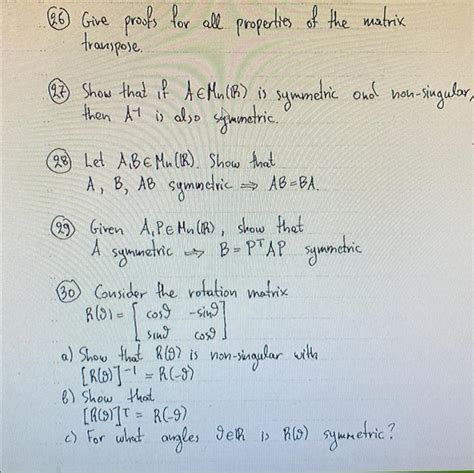 (26) Give proofs for all properties of the matrix
transpose.
(27) Show that if A∈Mn(R) is symmetric and non-singular,
then A⁻¹ is also symmetric.
(28) Let A,B∈Mn(R). Show that
A, B, AB symmetric ⇒ AB=BA.
(29) Given A,P∈Mn(R), show that
A symmetric ⇒ B=PᵀAP symmetric
(30) Consider the rotation matrix
R(ϑ) = [ cosϑ -sinϑ ]
[ sinϑ cosϑ ]
a) Show that R(ϑ) is non-singular with
[R(ϑ)]⁻¹ = R(-ϑ)
b) Show that
[R(ϑ)]ᵀ = R(-ϑ)
c) For what angles ϑ∈R is R(ϑ) symmetric?